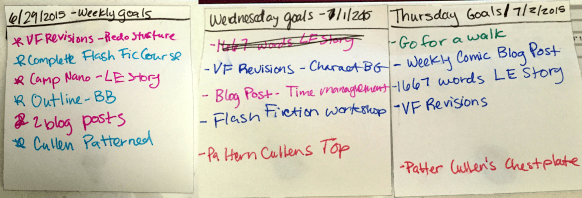 6/29/2015 - Weekly Goals
VF Revisions - Redo structure
Complete Flash Fic Course
Camp Nano - LE Story
Outline - BB
2 blog posts
Cullen Patterned
Wednesday goals - 7/1/2015
1667 words LE Story
- VF Revisions - Charact BG
- Blog Post - Time management
- Flash Fiction workshop
- Pattern Cullens Top
Thursday Goals / 7/2/2015
- Go for a walk
- Weekly Comic Blog Post
- 1667 words LE Story
- VF Revisions
- Patter Cullen's Chestplate